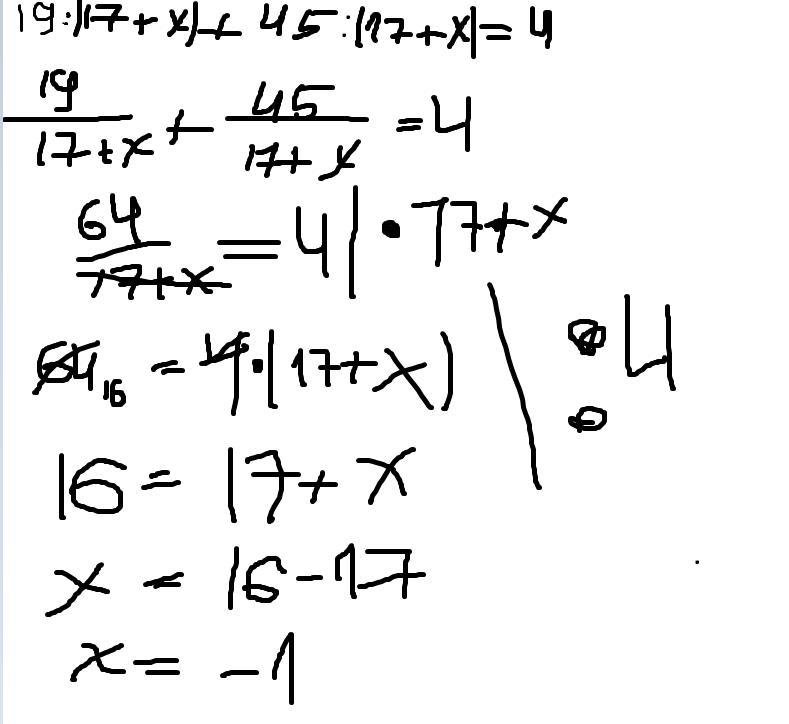 19:(17+x)+45:(17+x)=4
19/17+x + 45/17+x =4
64/17+x =4|•17+x
64 16 = 4•(17+x) \ :4
16=17+x
x=16-17
x=-1